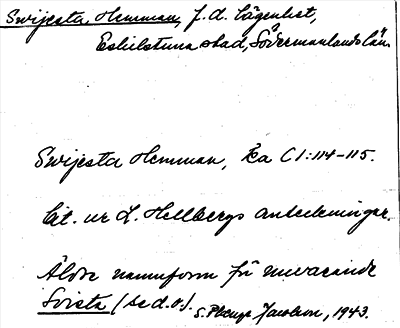 Swijesta Hemman, f.d. lägenhet,
Eskilstuna stad, Södermanlands län.
Swijesta Hemman, Ka C I:114-115.
Cit. ur L. Hellbergs anteckningar.
Äldre namnform för nuvarande
Svista (se d.o.). S. Jacobson, 1943.